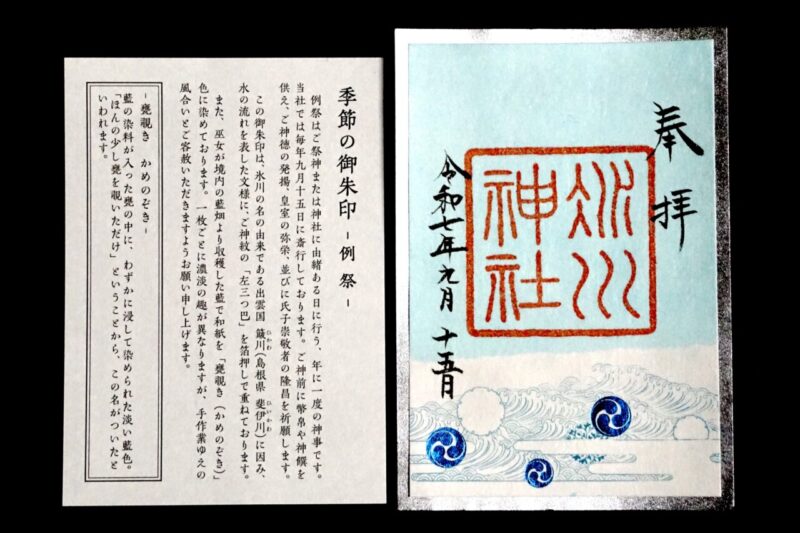 奉拝
氷川
神社
令和七年九月十五日
季節の御朱印 - 例祭 -
例祭はご祭神または神社に由緒ある日に行う、年に一度の神事です。
当社では毎年九月十五日に斎行しております。ご神前に幣帛や神饌を
供え、ご神徳の発揚、皇室の弥栄、並びに氏子崇敬者の隆昌を祈願します。
この御朱印は、氷川の名の由来である出雲国 簸川(ひかわ)(島根県 斐伊川(ひいかわ))に因み、
水の流れを表した文様に、ご神紋の「左三つ巴」を箔押しで重ねております。
また、巫女が境内の藍畑より収穫した藍で和紙を「甕覗き(かめのぞき)」
色に染めております。一枚ごとに濃淡の趣が異なりますが、手作業ゆえの
風合いとご容赦いただきますようお願い申し上げます。
- 甕覗き かめのぞき -
藍の染料が入った甕の中に、わずかに浸して染められた淡い藍色。
「ほんの少し甕を覗いただけ」ということから、この名がついたと
いわれます。